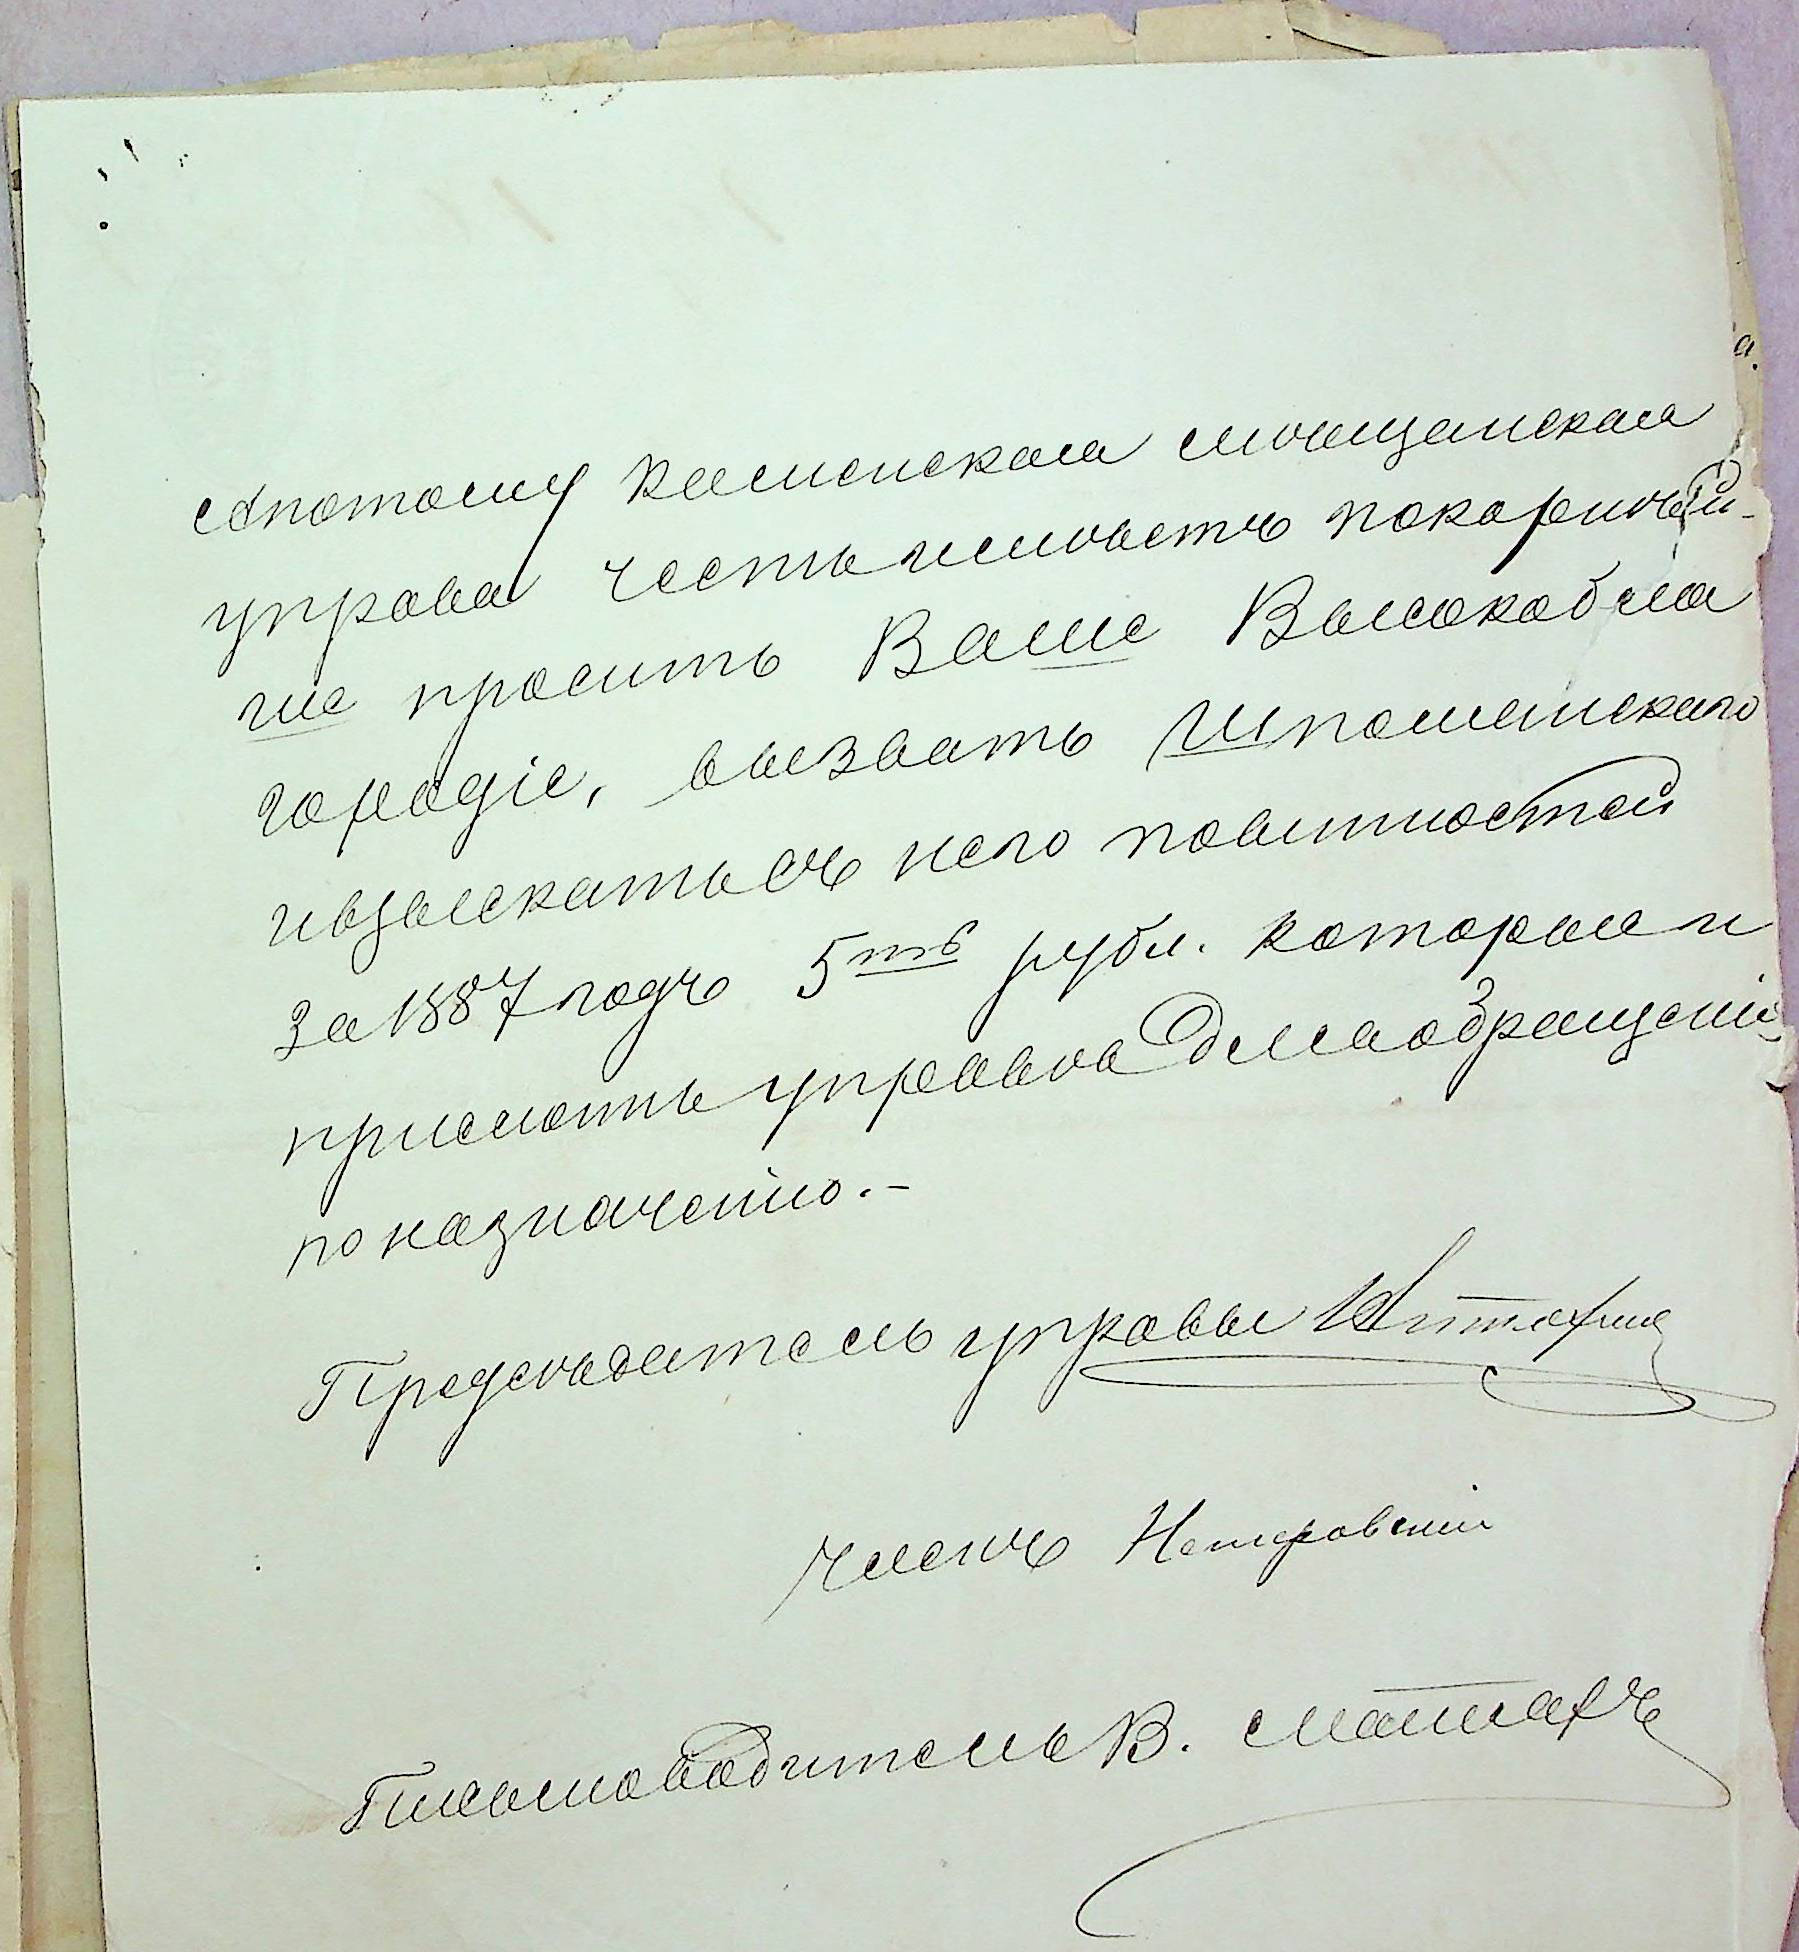 Апотому Каменская мѣщанская
управа честь имѣетъ покорнѣй-
ше просить Ваше Высокобла
городіе, вызвать Шпоманскаго
ивзыскать съ него повинностей
за 1887 годъ 5ть рубл. которые и
прислать управѣ для обращенія
по назначенію.-
Предсѣдатель управы
Членъ
Письмоводитель В.